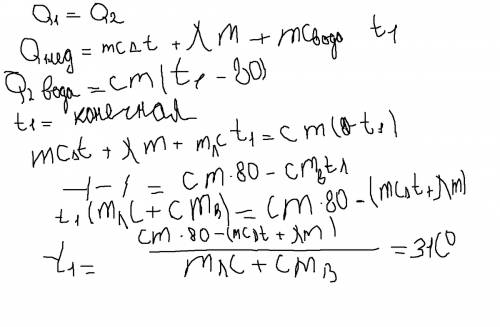 Q1 = Q2
Qлед = mcΔt + λm + mcводы t1
Q2 вода = cm(t1 - 80)
t1 = конечная
mcΔt + λm + mлc t1 = cm(8 t1)
-1-1 = cm·80 - cmвt1
t1(mлc + cmв) = cm·80 - (mcΔt + λm)
t1 = cm·80 - (mcΔt + λm) / mлc + cmв = 31C⁰